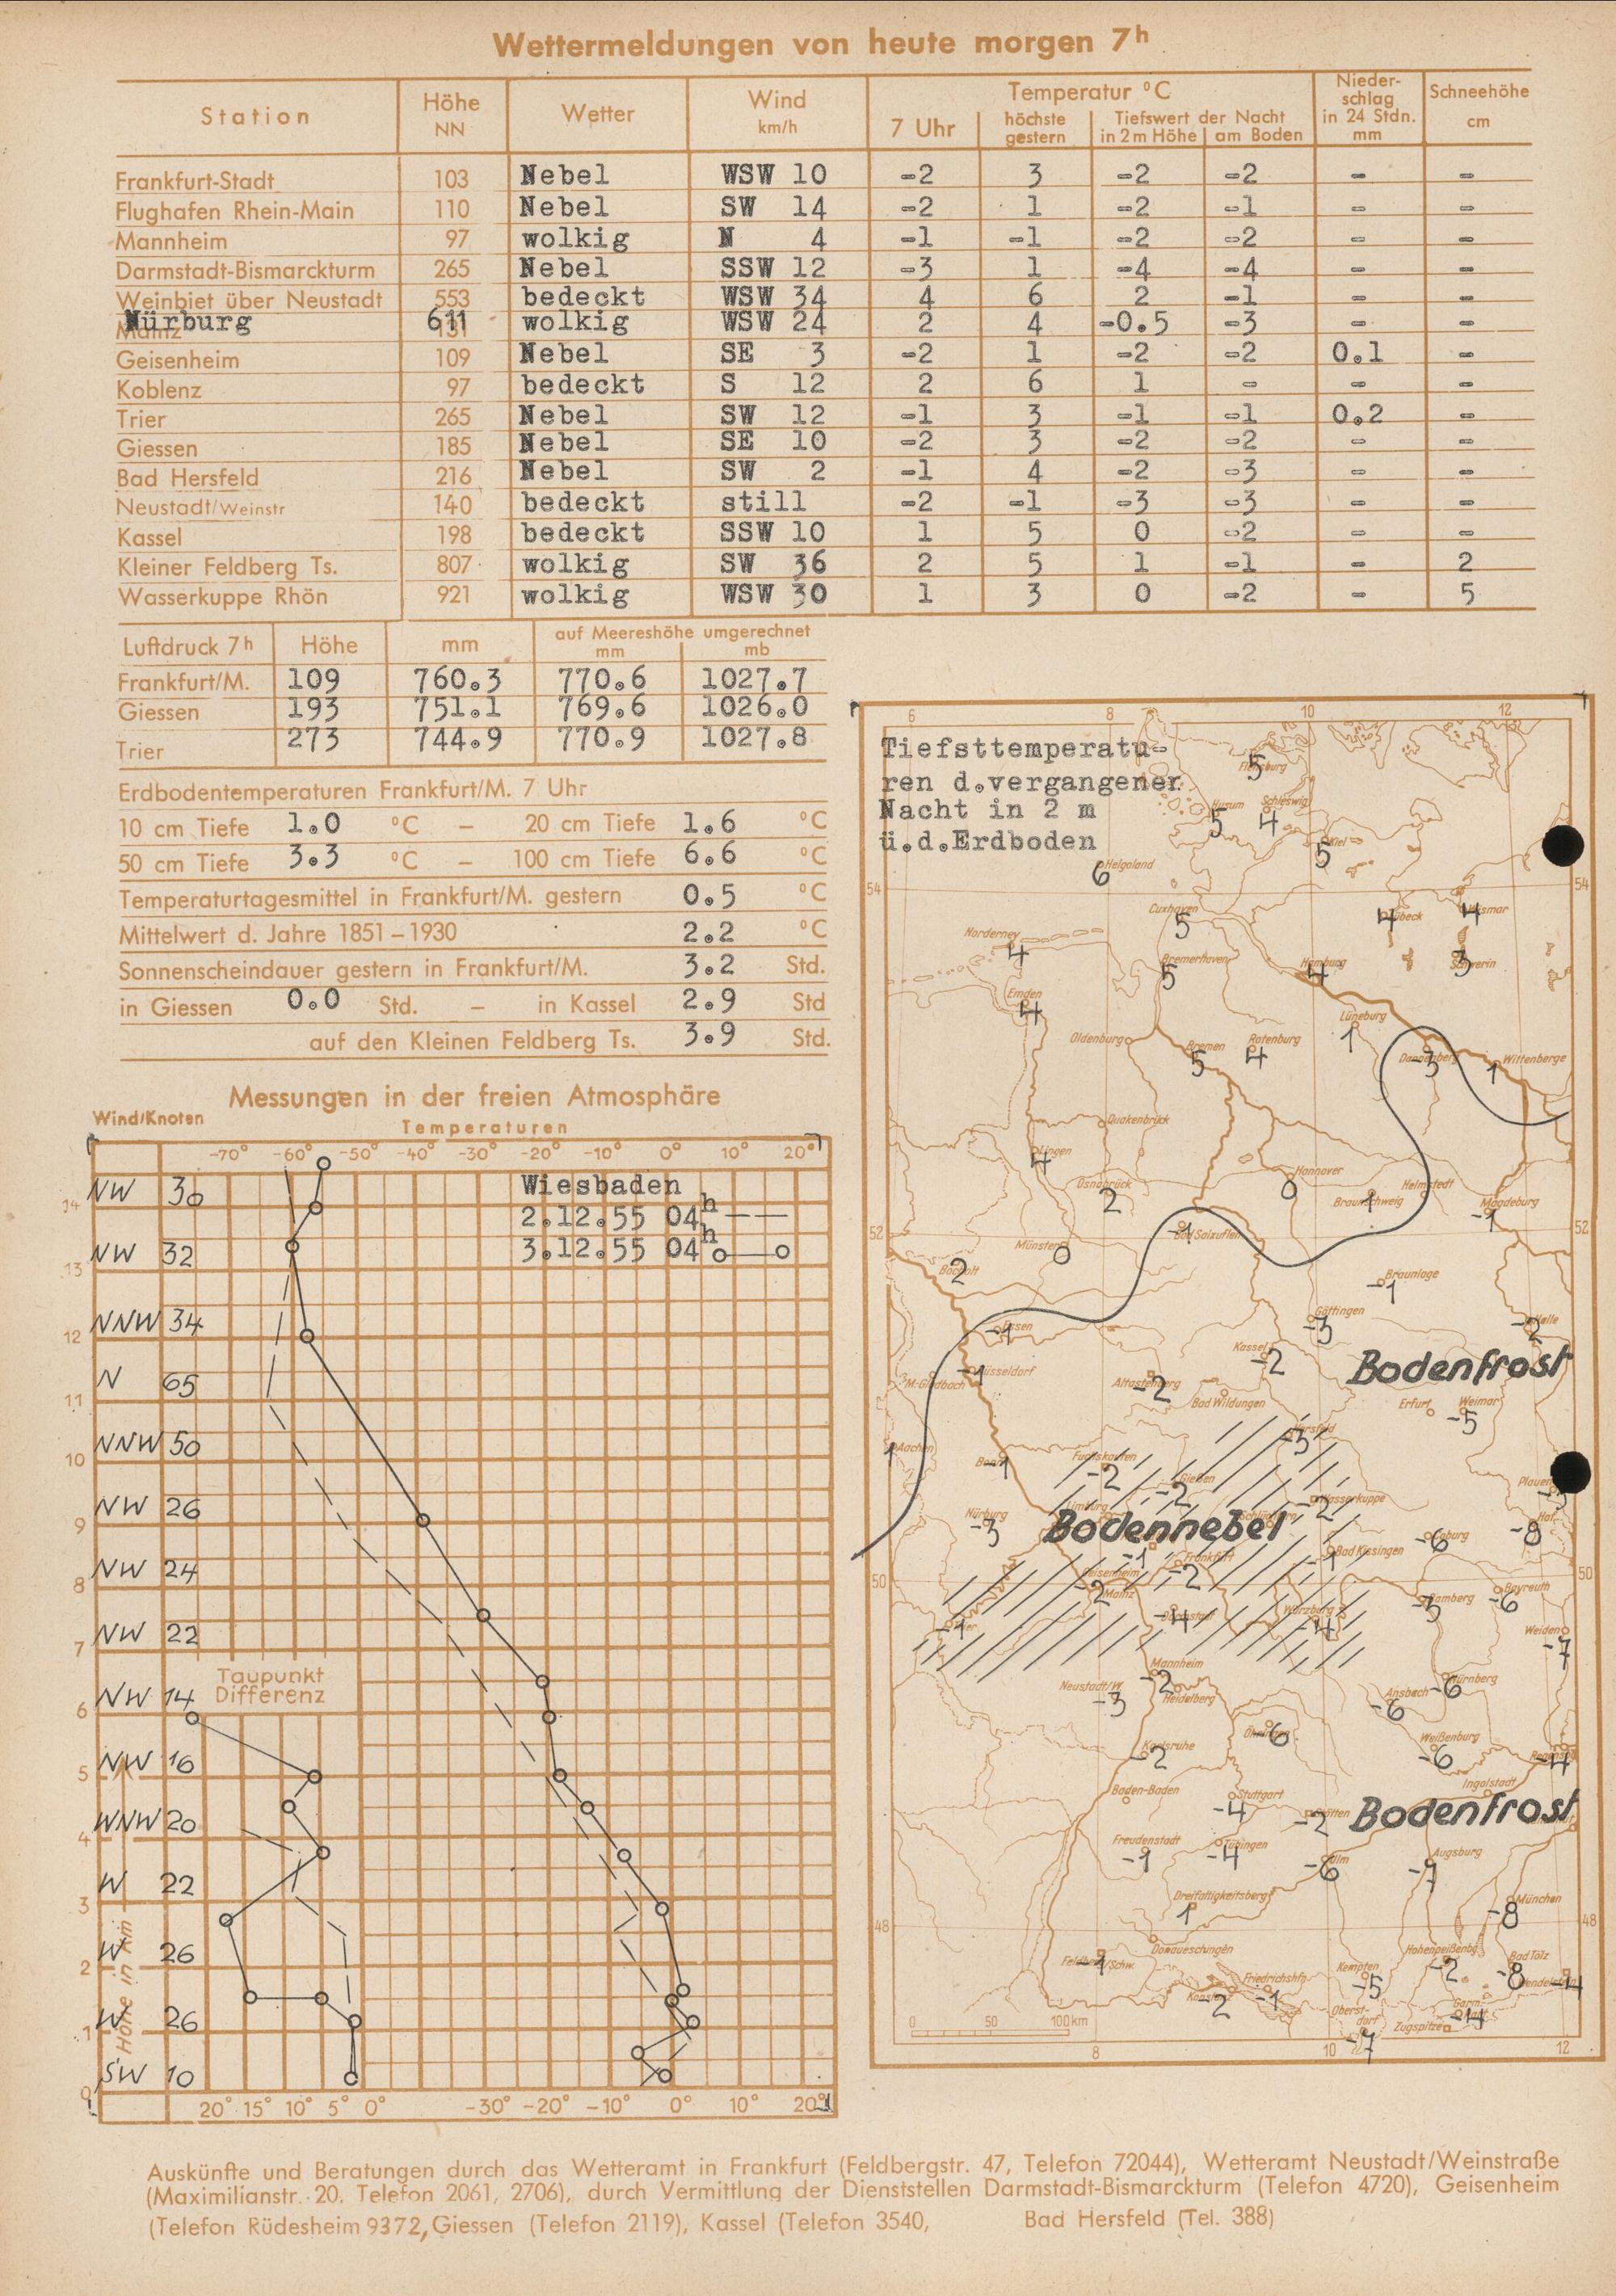 Wettermeldungen von heute morgen 7h
Station Höhe NN Wetter Wind km/h Temperatur °C Nieder-schlag in 24 Stdn. mm Schneehöhe cm
7 Uhr höchste gestern Tiefswert der Nacht in 2 m Höhe am Boden
Frankfurt-Stadt 103 Nebel WSW 10 -2 3 -2 -2 - -
Flughafen Rhein-Main 110 Nebel SW 14 -2 1 -2 -1 - -
Mannheim 97 wolkig N 4 -1 -1 -2 -2 - -
Darmstadt-Bismarckturm 265 Nebel SSW 12 -3 1 -4 -4 - -
Weinbiet über Neustadt 553 bedeckt WSW 34 4 6 2 -1 - -
Nürburg 611 wolkig WSW 24 2 4 -0.5 -3 - -
Mainz 131
Geisenheim 109 Nebel SE 3 -2 1 -2 -2 0.1 -
Koblenz 97 bedeckt S 12 2 6 1 - - -
Trier 265 Nebel SW 12 -1 3 -1 -1 0.2 -
Giessen 185 Nebel SE 10 -2 3 -2 -2 - -
Bad Hersfeld 216 Nebel SW 2 -1 4 -2 -3 - -
Neustadt/Weinstr 140 bedeckt still -2 -1 -3 -3 - -
Kassel 198 bedeckt SSW 10 1 5 0 -2 - -
Kleiner Feldberg Ts. 807 wolkig SW 36 2 5 1 -1 - 2
Wasserkuppe Rhön 921 wolkig WSW 30 1 3 0 -2 - 5
Luftdruck 7h Höhe mm auf Meereshöhe umgerechnet mm mb
Frankfurt/M. 109 760.3 770.6 1027.7
Giessen 193 751.1 769.6 1026.0
Trier 273 744.9 770.9 1027.8
Erdbodentemperaturen Frankfurt/M. 7 Uhr
10 cm Tiefe 1.0 °C – 20 cm Tiefe 1.6 °C
50 cm Tiefe 3.3 °C – 100 cm Tiefe 6.6 °C
Temperaturtagesmittel in Frankfurt/M. gestern 0.5 °C
Mittelwert d. Jahre 1851–1930 2.2 °C
Sonnenscheindauer gestern in Frankfurt/M. 3.2 Std.
in Giessen 0.0 Std. – in Kassel 2.9 Std
auf den Kleinen Feldberg Ts. 3.9 Std.
Messungen in der freien Atmosphäre
Wind/Knoten Temperaturen
-70° -60° -50° -40° -30° -20° -10° 0° 10° 20°
Wiesbaden
2.12.55 04h
3.12.55 04h
14 NW 30
13 NW 32
12 NNW 34
11 N 65
10 NNW 50
9 NW 26
8 NW 24
7 NW 22
Taupunkt
Differenz
6 NW 14
5 NW 16
4 WNW 20
3 W 22
2 W 26
1 W 26
0 SW 10
Höhe in km
20° 15° 10° 5° 0° -30° -20° -10° 0° 10° 20°
6 8 10 12
Tiefsttemperatu-
ren d.vergangener
Nacht in 2 m
ü.d.Erdboden
Flensburg 5
Husum 5 Schleswig 4
Kiel 5
Helgoland 6
54 54
Cuxhaven 5 Lübeck 4 Wismar 4
Norderney 4 Bremerhaven 5 Hamburg 4 Schwerin 3
Emden 4 Lüneburg 1
Oldenburg Bremen 5 Rotenburg 4 Dannenberg 3 Wittenberge 1
Quakenbrück
Lingen 4
Osnabrück 2 Hannover 0 Braunschweig 1 Helmstedt Magdeburg -1
52 Münster 0 Bad Salzuflen -1 52
Bocholt 2 Braunlage -1
Essen -1 Göttingen -3 Halle -2
Kassel -2
Düsseldorf -1 Bodenfrost
M-Gladbach Altastenberg -2 Bad Wildungen Erfurt Weimar -5
Aachen 1 Bonn -1 Fuchskauten -2 Hersfeld -3
Gießen -2 Plauen
Limburg Wasserkuppe -2
Nürburg -3 Bodennebel Coburg -6 Hof -8
-1 Frankfurt -2 Bad Kissingen -1
50 Geisenheim -2 Mainz 50
Trier -1 Darmstadt -4 Würzburg -4 Bamberg -3 Bayreuth -6
Weiden -7
Mannheim -2 Nürnberg -6
Neustadt/W. -3 Heidelberg Ansbach -6
Öhringen -6 Weißenburg -6
Karlsruhe -2 -4
Baden-Baden Stuttgart -4 Ingolstadt
Stötten -2 Bodenfrost
Freudenstadt -1 Tübingen -4 Ulm -6 Augsburg
Dreifaltigkeitsberg 1 München -8
48 48
Donaueschingen Hohenpeißenbg. -2 Bad Tölz -8
Feldberg/Schw. -1 Friedrichshfn. -1 Kempten -5
Konstanz -2 Garm.
Oberst-dorf -7 Zugspitze
0 50 100 km
8 10 12
Auskünfte und Beratungen durch das Wetteramt in Frankfurt (Feldbergstr. 47, Telefon 72044), Wetteramt Neustadt/Weinstraße
(Maximilianstr. 20, Telefon 2061, 2706), durch Vermittlung der Dienststellen Darmstadt-Bismarckturm (Telefon 4720), Geisenheim
(Telefon Rüdesheim 9372, Giessen (Telefon 2119), Kassel (Telefon 3540, Bad Hersfeld (Tel. 388)